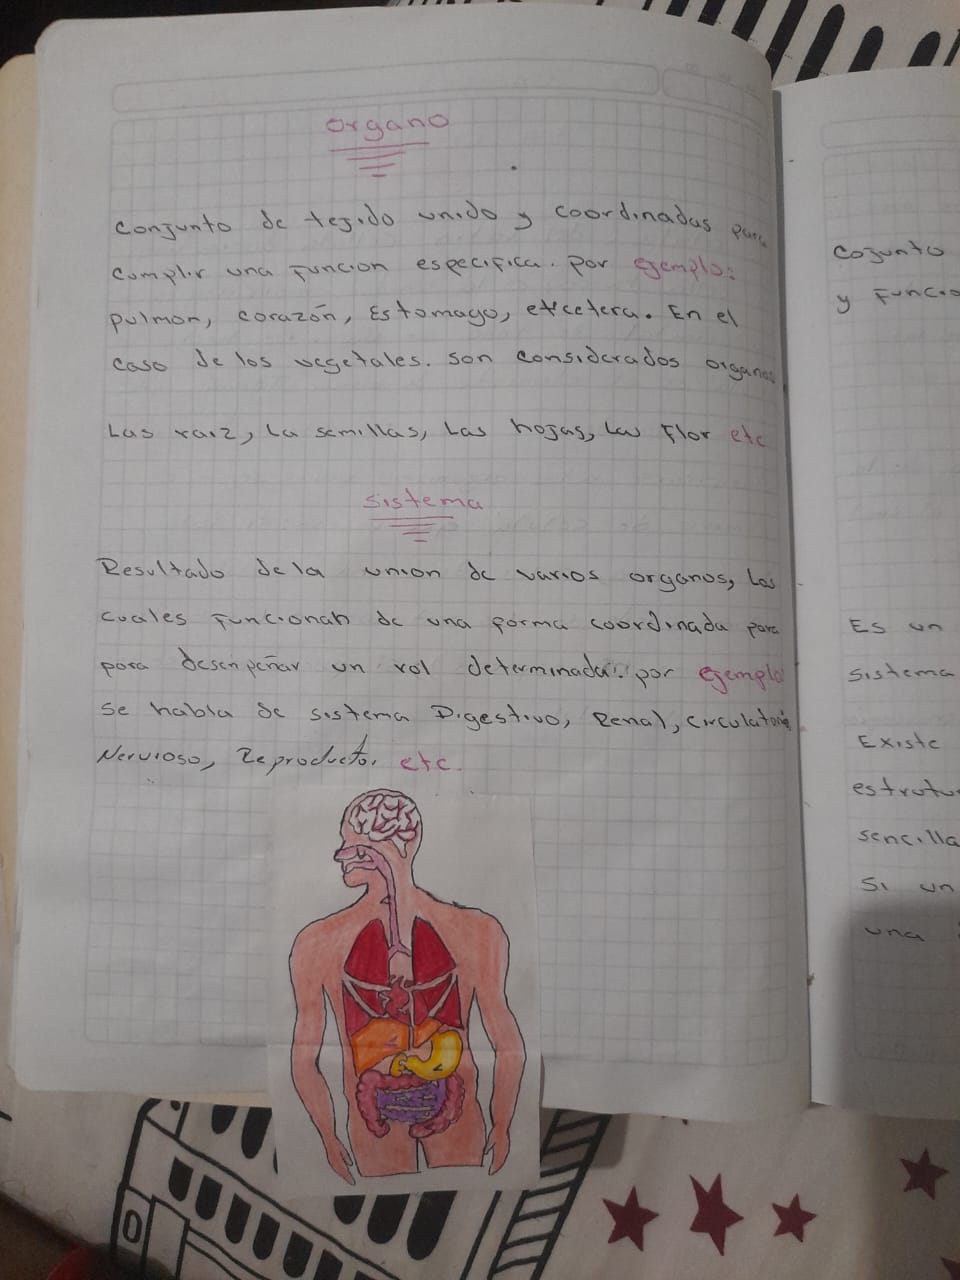 organo
conjunto de tejido unido y coordinadas para
cumplir una funcion especifica. por ejemplo:
pulmon, corazón, Estomago, etcetera. En el
caso de los vegetales. son considerados organos
Las raiz, La semillas, Las hojas, Las Flor etc
sistema
Resultado dela union de varios organos, Los
cuales Funcionan de una forma coordinada para
para desenpeñar un rol determinada. por ejemplo
se habla de sistema Digestivo, Renal, circulatorio,
Nervioso, Reproductor, etc.
cojunto
y Funcio
Es un
sistema
Existe
estrutu
sencilla
Si un
una